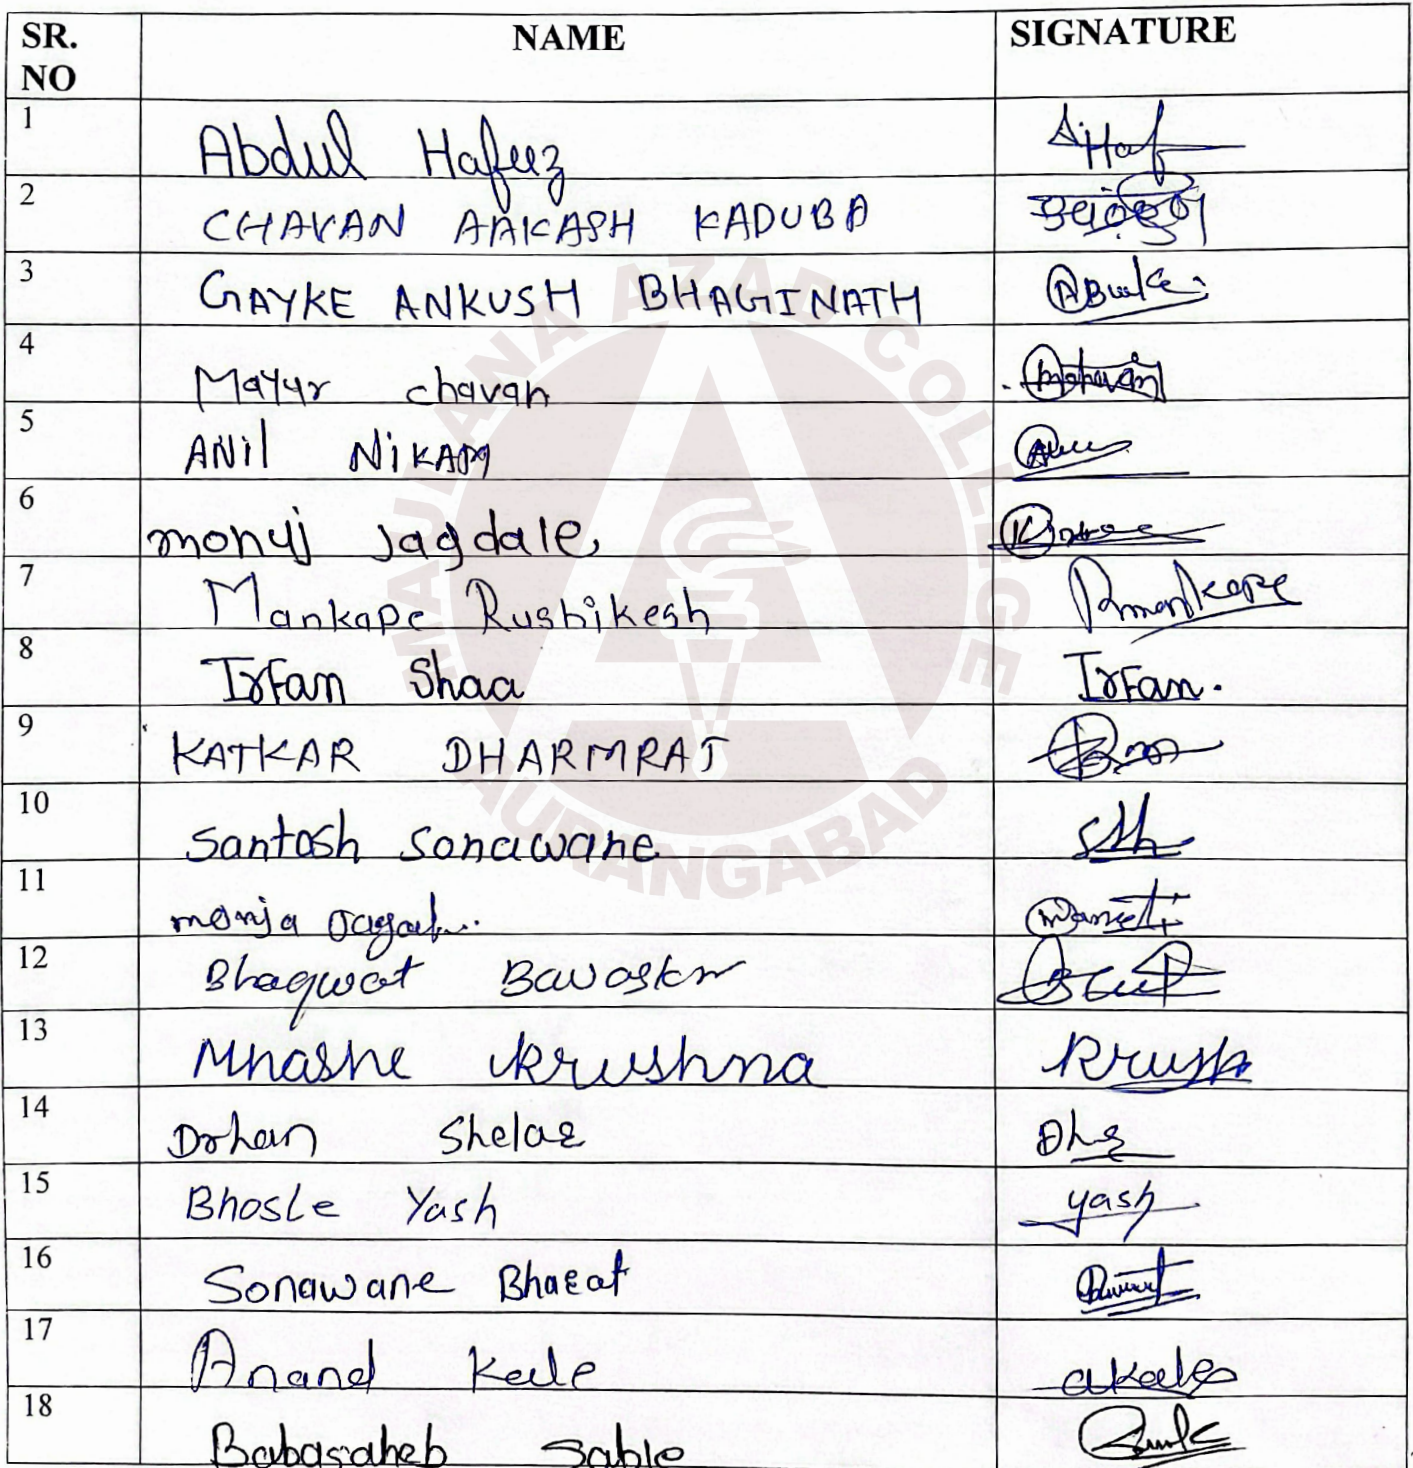 SR. NO NAME SIGNATURE
1 Abdul Hafeez A.Haf
2 CHAVAN AAKASH KADUBA
3 GAYKE ANKUSH BHAGINATH
4 Mayur chavan
5 ANil NiKAM
6 monuj Jagdale
7 Mankape Rushikesh Rmankape
8 Irfan Shaa Irfan.
9 KATKAR DHARMRAJ
10 Santosh Sonawane
11 monja
12 Bhagwat Bawaskr
13 Mhashe Krushna Krush
14 Drhan Shelar
15 Bhosle Yash yash
16 Sonawane Bharat
17 Anand Kale akale
18 Babasaheb Sable
MAULANA AZAD COLLEGE
AURANGABAD